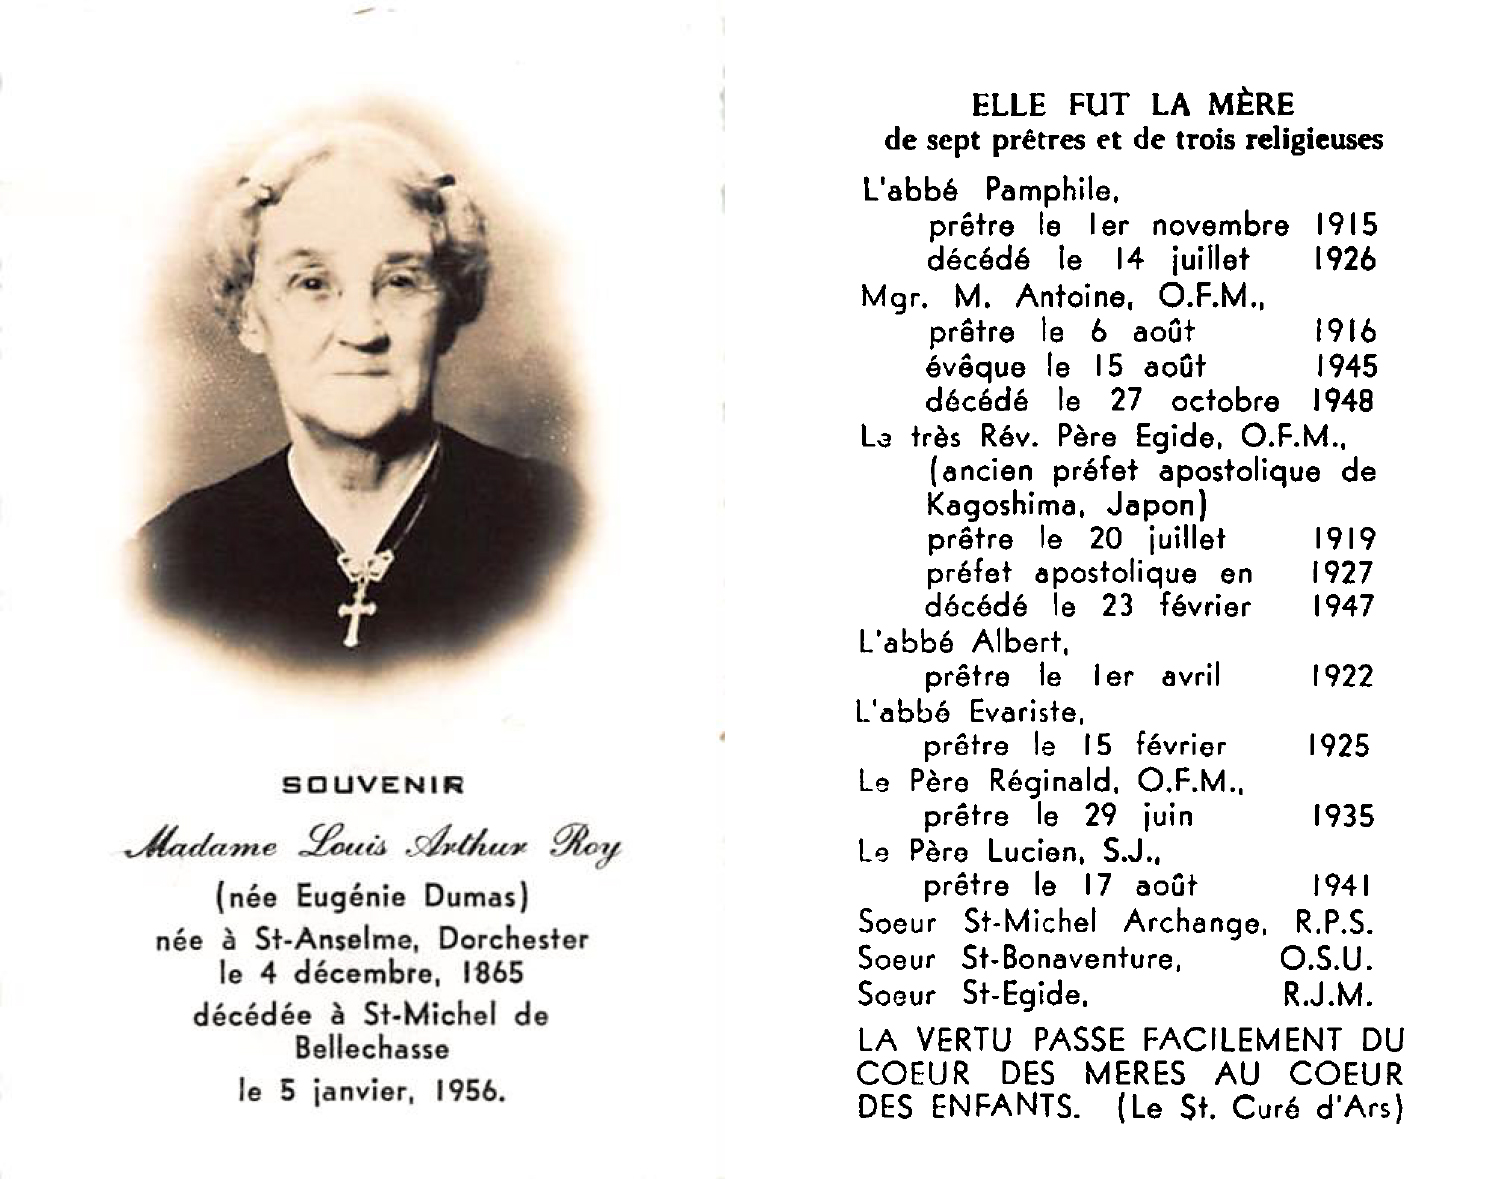 SOUVENIR
Madame Louis Arthur Roy
(née Eugénie Dumas)
née à St-Anselme, Dorchester
le 4 décembre, 1865
décédée à St-Michel de
Bellechasse
le 5 janvier, 1956.
ELLE FUT LA MÈRE
de sept prêtres et de trois religieuses
L'abbé Pamphile,
prêtre le 1er novembre 1915
décédé le 14 juillet 1926
Mgr. M. Antoine, O.F.M.,
prêtre le 6 août 1916
évêque le 15 août 1945
décédé le 27 octobre 1948
Le très Rév. Père Egide, O.F.M.,
(ancien préfet apostolique de
Kagoshima, Japon)
prêtre le 20 juillet 1919
préfet apostolique en 1927
décédé le 23 février 1947
L'abbé Albert,
prêtre le 1er avril 1922
L'abbé Evariste,
prêtre le 15 février 1925
Le Père Réginald, O.F.M.,
prêtre le 29 juin 1935
Le Père Lucien, S.J.,
prêtre le 17 août 1941
Soeur St-Michel Archange, R.P.S.
Soeur St-Bonaventure, O.S.U.
Soeur St-Egide, R.J.M.
LA VERTU PASSE FACILEMENT DU
COEUR DES MERES AU COEUR
DES ENFANTS. (Le St. Curé d'Ars)